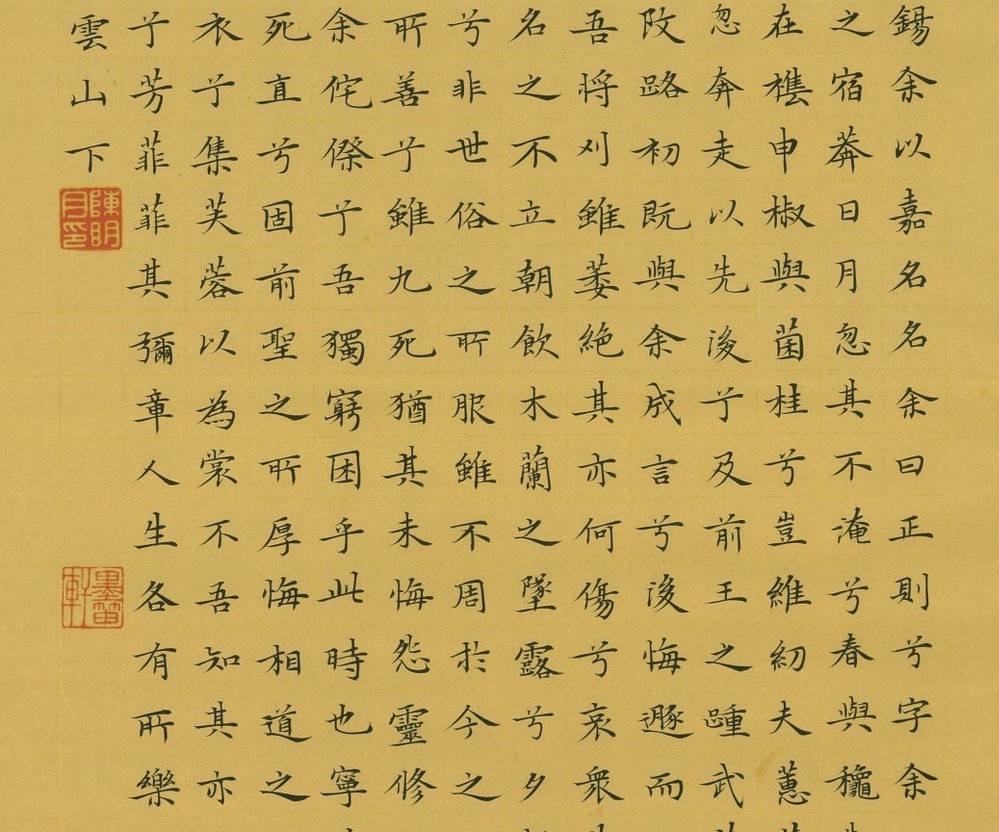 錫余以嘉名名余曰正則兮字余
之宿莽日月忽其不淹兮春與龝
在襍申椒與菌桂兮豈維紉夫蕙
忽奔走以先後兮及前王之踵武
改路初既與余成言兮後悔遯而
吾將刈雖萎絕其亦何傷兮哀眾
名之不立朝飲木蘭之墜露兮夕
兮非世俗之所服雖不周於今之
所善兮雖九死猶其未悔怨靈修
余侘傺兮吾獨窮困乎此時也寧
死直兮固前聖之所厚悔相道之
衣兮集芙蓉以為裳不吾知其亦
兮芳菲菲其彌章人生各有所樂
雲山下
陳明
月印